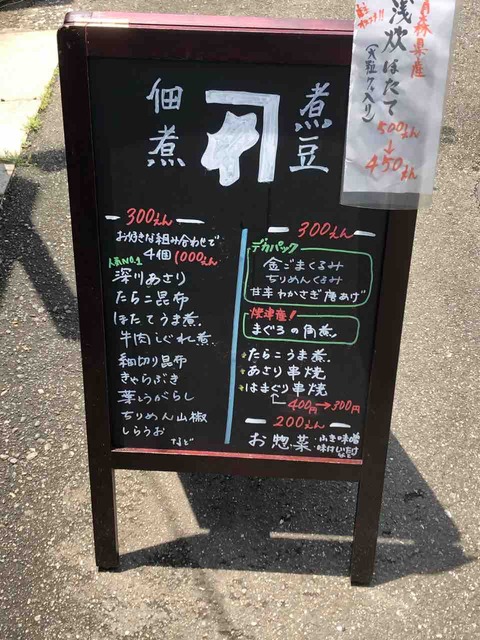 青森県産
浅炊ほたて
(大粒7ヶ入り)
500えん
↓
450えん
煮豆
佃煮
300えん
お好きな組み合わせで
4個1000えん
人気NO.1
深川あさり
たらこ昆布
ほたてうま煮
牛肉しぐれ煮
細切り昆布
きゃらぶき
葉とうがらし
ちりめん山椒
しらうお
など
300えん
デカパック
金ごまくるみ
ちりめんくるみ
甘辛わかさぎ唐あげ
焼津産!
まぐろの角煮
・たらこうま煮
・あさり串焼
・はまぐり串焼
400円→300円
200えん
お惣菜
・山き味噌
・味付いたけ
など